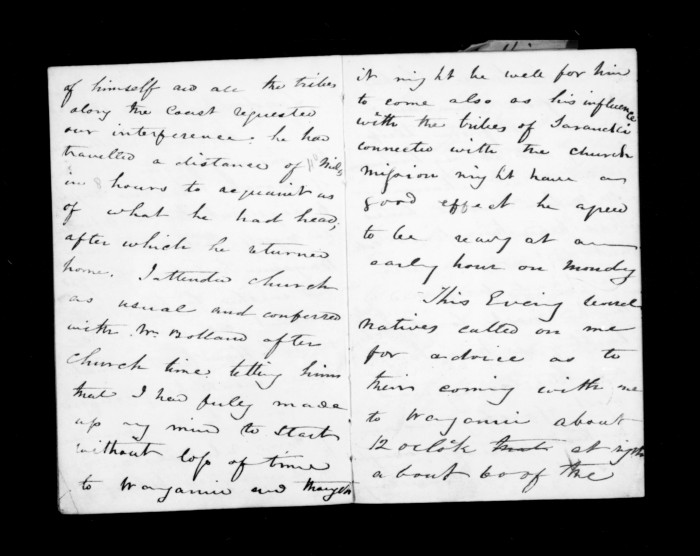 of himself and all the tribes
along the Coast requested
our interference. he had
travelled a distance of Miles
in 8 hours to acquaint us
of what he had head;
after which he returned
home. I attended church
as usual and conferred
with Mr Bolland after
Church time telling him
that I had fully made
up my mind to start
without loss of time
to Wanganui and
it might be well for him
to come also as his influence
with the tribes of Taranaki
connected with the church
mission might have a
good effect he agreed
to be ready at an
early hour on Monday
This Evening several
natives called on me
for advice as to
their coming with me
to Wanganui about
12 oclok at night
about 60 of the